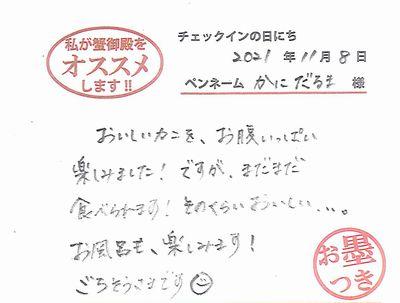 私が蟹御殿を
オススメ
します!!
チェックインの日にち
2021年11月8日
ペンネーム かに だるま 様
おいしいカニを、お腹いっぱい
楽しみました! ですが、まだまだ
食べられます! そのくらいおいしい、、、。
お風呂も、楽しみます!
ごちそうさまです
お墨
つき